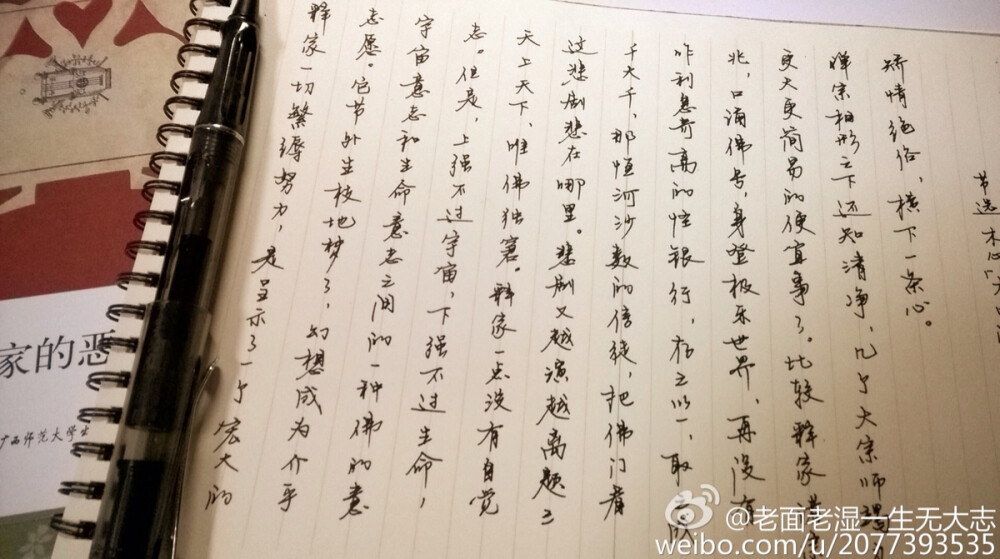 释家一切繁缛努力，是呈示了一个宏大的
志愿。它节外生枝地梦了，幻想成为介乎
宇宙意志和生命意志之间的一种佛的意
志。但是，上强不过宇宙，下强不过生命，
天上天下，唯佛独窘。释家一点没有自觉
过悲剧悲在哪里。悲剧又越演越离题三
千大千，那恒河沙数的信徒，把佛门看
作利息奇高的银行，存之以一，取成
兆，口诵佛号，身登极乐世界，再没有
更大更简易的便宜事了。比较释家
禅宗相形之下还知清净，几个大宗师
矫情绝俗，横下一条心。
节选木心
家的恶
广西师范大学出
@老面老湿一生无大志
weibo.com/u/2077393535